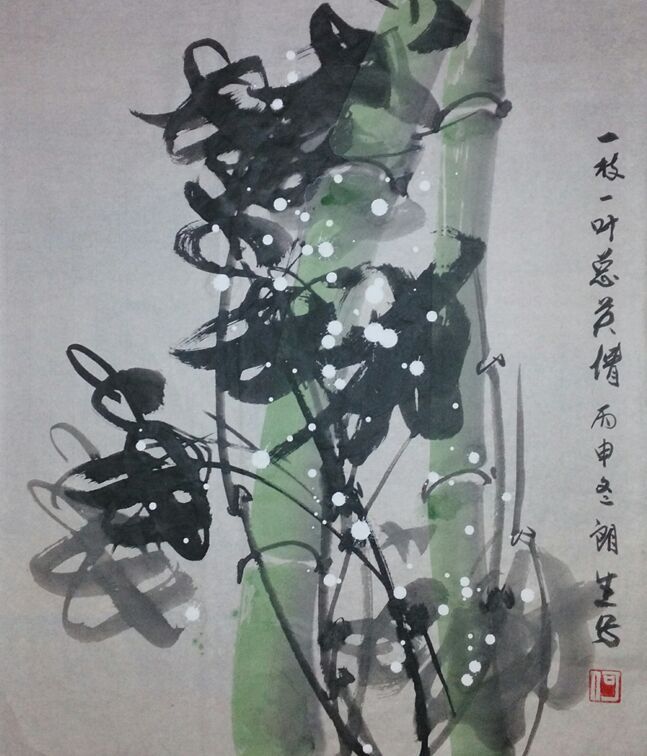 一枝一叶总关情 丙申冬 朗生写